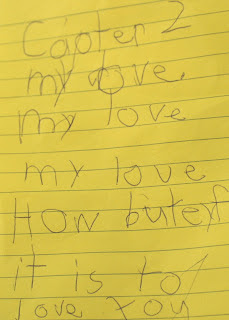 Capter 2
my love.
My love
my love
How buterf
it is to
love you